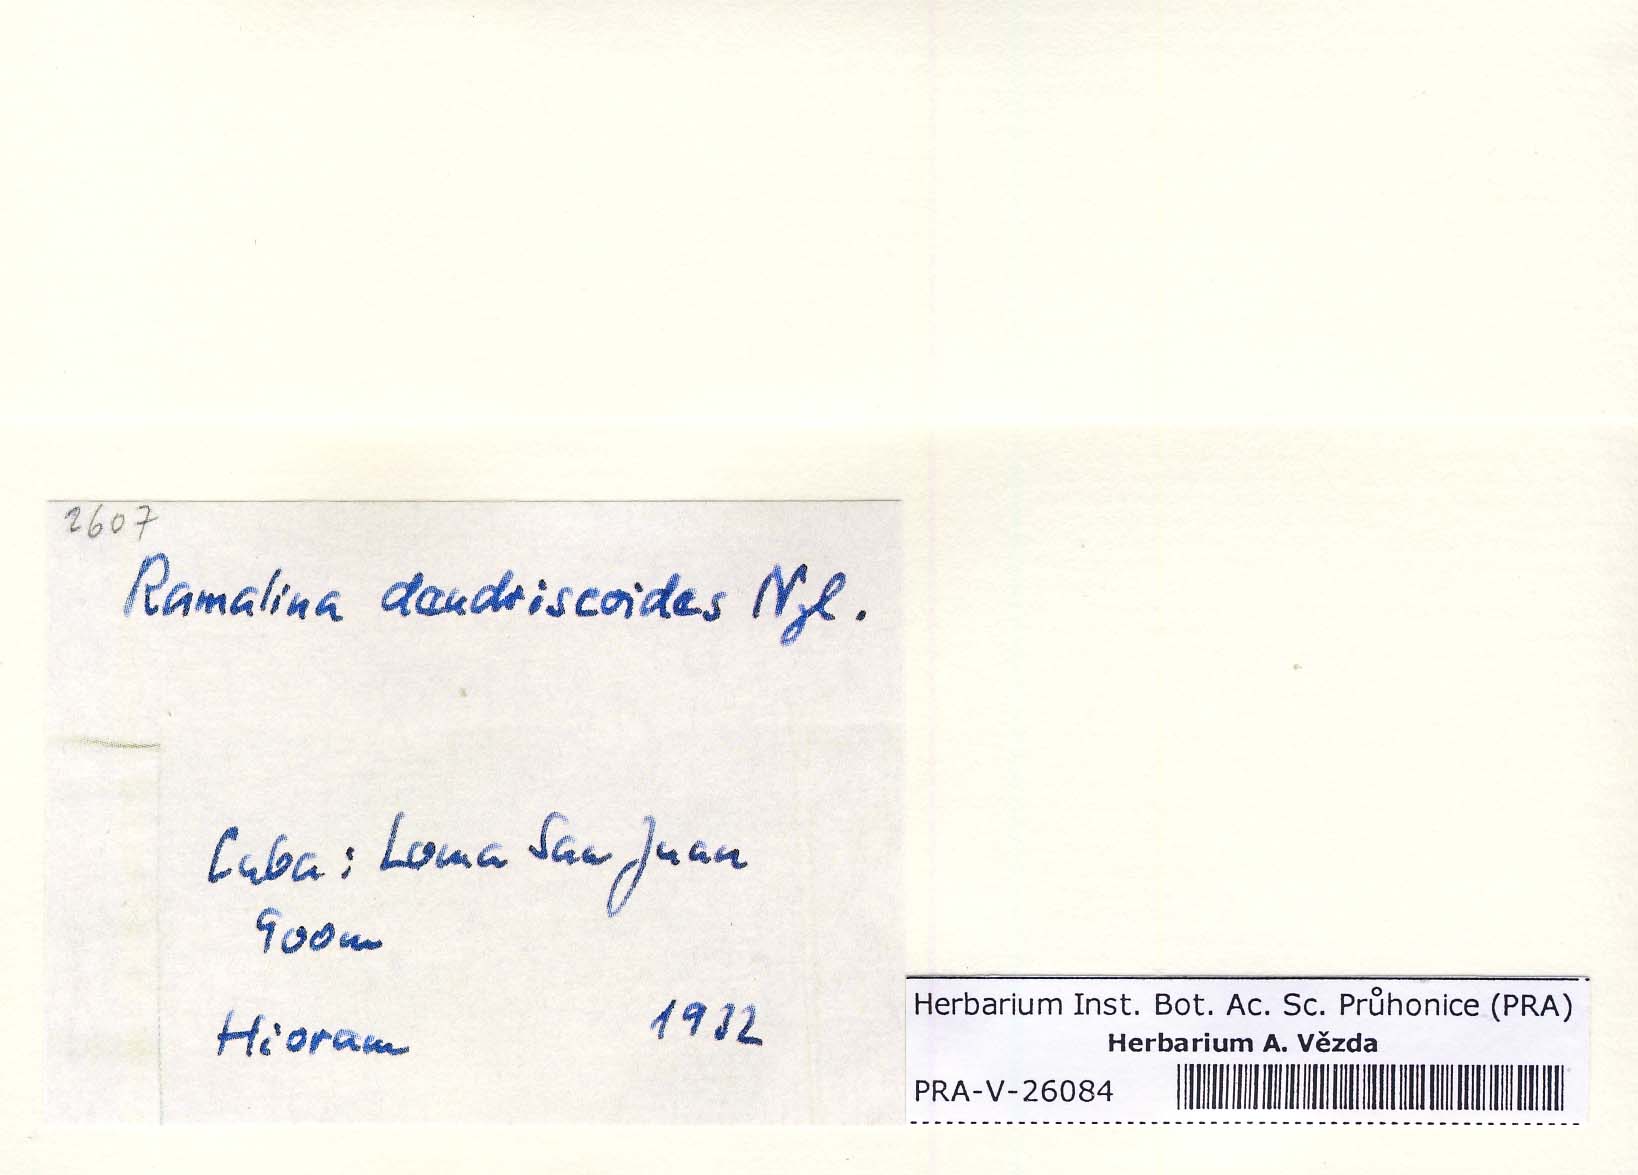 2607
Ramalina dendriscoides Nyl.
Cuba: Loma San Juan
900m
Hioram 1932
Herbarium Inst. Bot. Ac. Sc. Průhonice (PRA)
Herbarium A. Vězda
PRA-V-26084